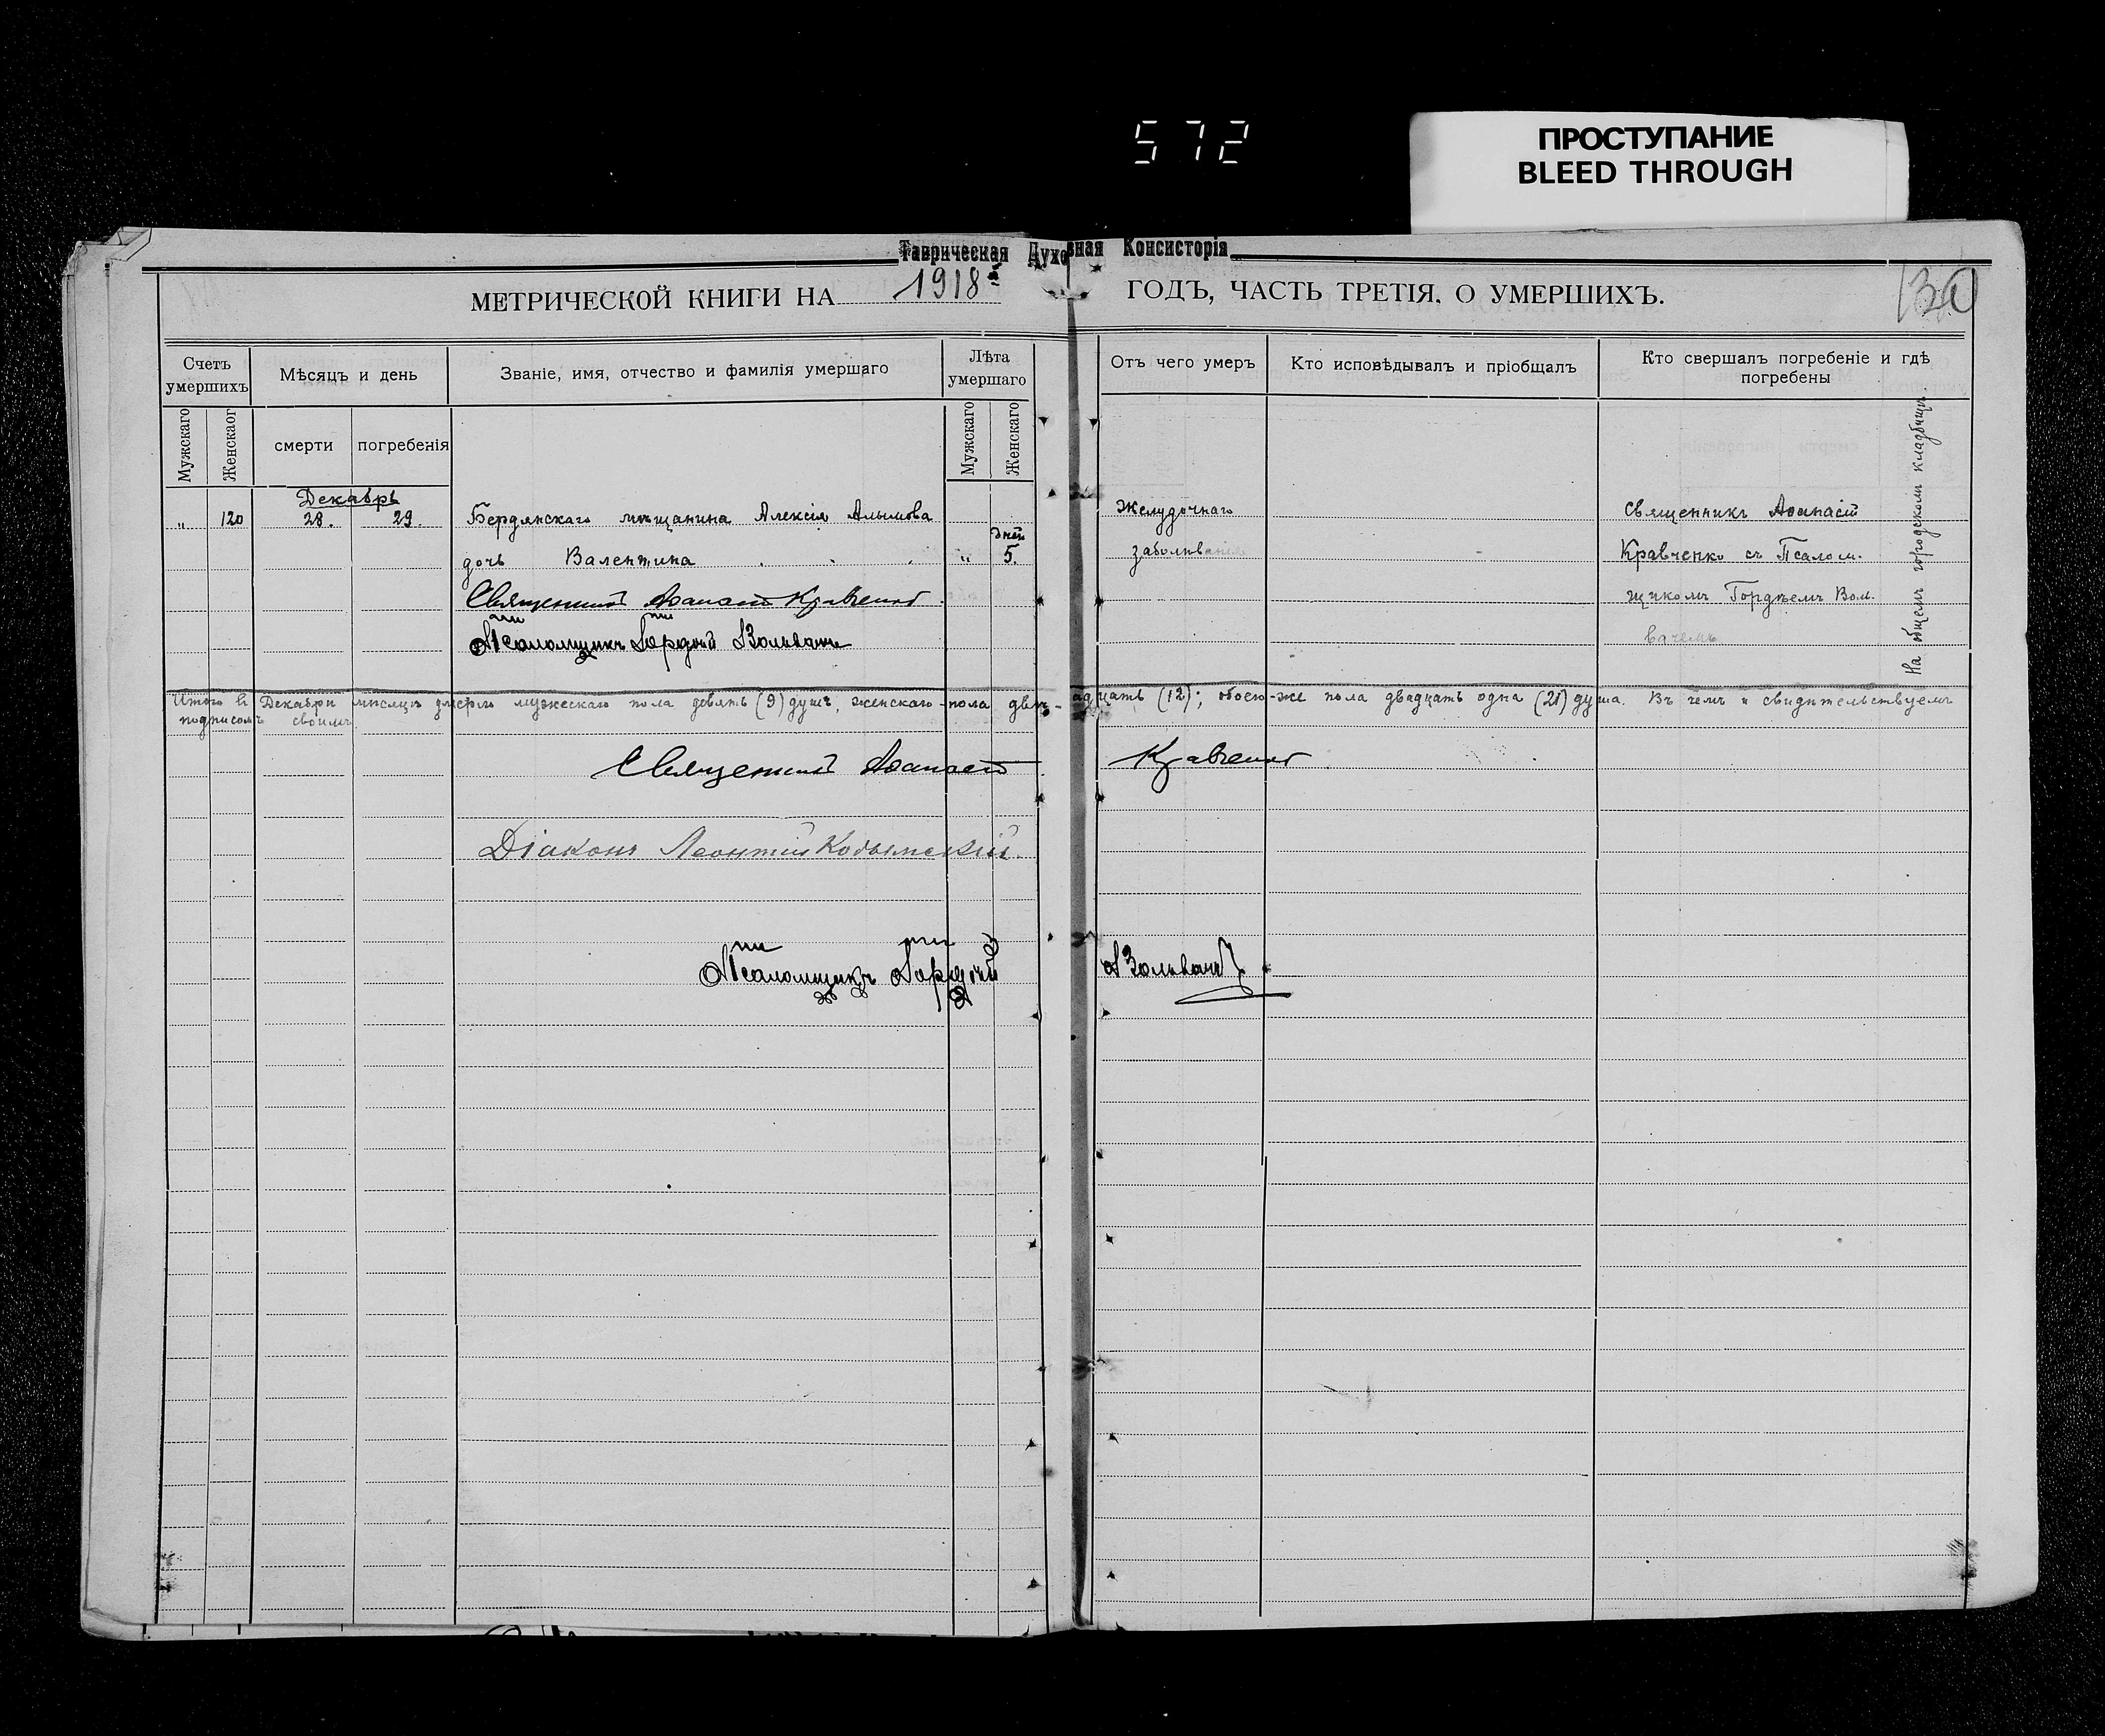 572
ПРОСТУПАНИЕ
BLEED THROUGH
Таврическая Духовная Консисторія
МЕТРИЧЕСКОЙ КНИГИ НА 1918 ГОДЪ, ЧАСТЬ ТРЕТІЯ, О УМЕРШИХЪ.
Счетъ умершихъ
Мѣсяцъ и день
Званіе, имя, отчество и фамилія умершаго
Лѣта умершаго
Отъ чего умеръ
Кто исповѣдывалъ и пріобщалъ
Кто свершалъ погребеніе и гдѣ погребены
Мужскаго
Женскаог
смерти
погребенія
Мужскаго
Женскаго
Декабрь
„ 120 28. 29. Бердянскаго мѣщанина Алексія Алымова Желудочнаго Священникъ Аѳанасій
дочь Валентина „ дней 5. заболѣванія Кравченко съ Псалом-
Священникъ Аѳанасій Кравченко щикомъ Гордѣемъ Вол-
Псаломщикъ Гордѣй Волвачъ вачемъ
На общемъ городскомъ кладбищѣ.
Итого въ Декабрѣ мѣсяцѣ умерло мужескаго пола девять (9) душъ, женскаго-пола двѣ-надцать (12); обоего-же пола двадцать одна (21) душа. Въ чемъ и свидѣтельствуемъ
подписомъ своимъ
Священникъ Аѳанасій Кравченко
Діаконъ Леонтій Кодымскій.
Псаломщикъ Гордѣй Волвачъ